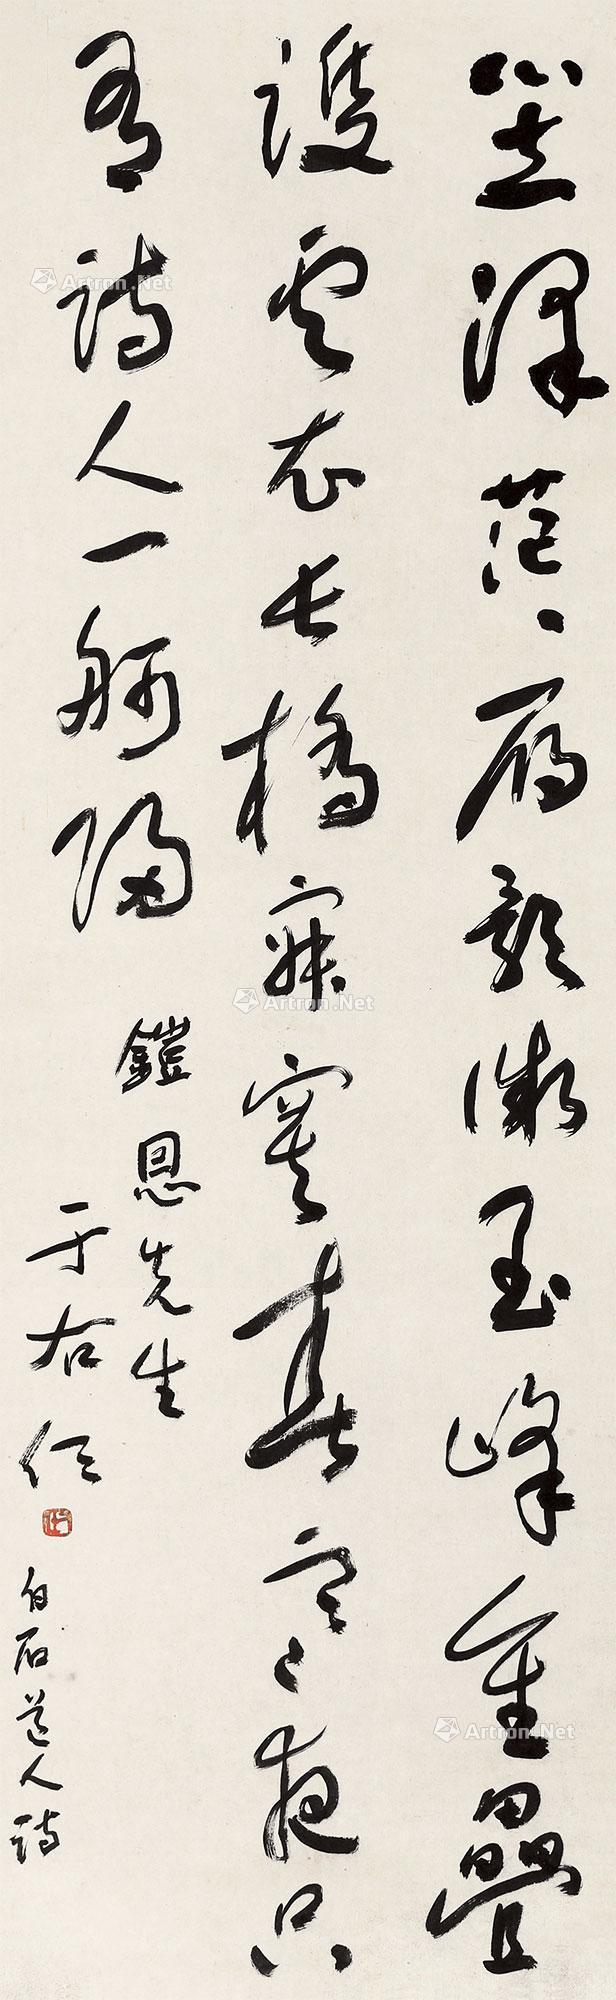 笠泽茫々雁影微玉峰重叠
護雲衣长橋寂寞春寒夜只
有詩人一舸歸
鎧恩先生
于右任
白石道人詩
Artron.Net
Artron.Net
Artron.Net